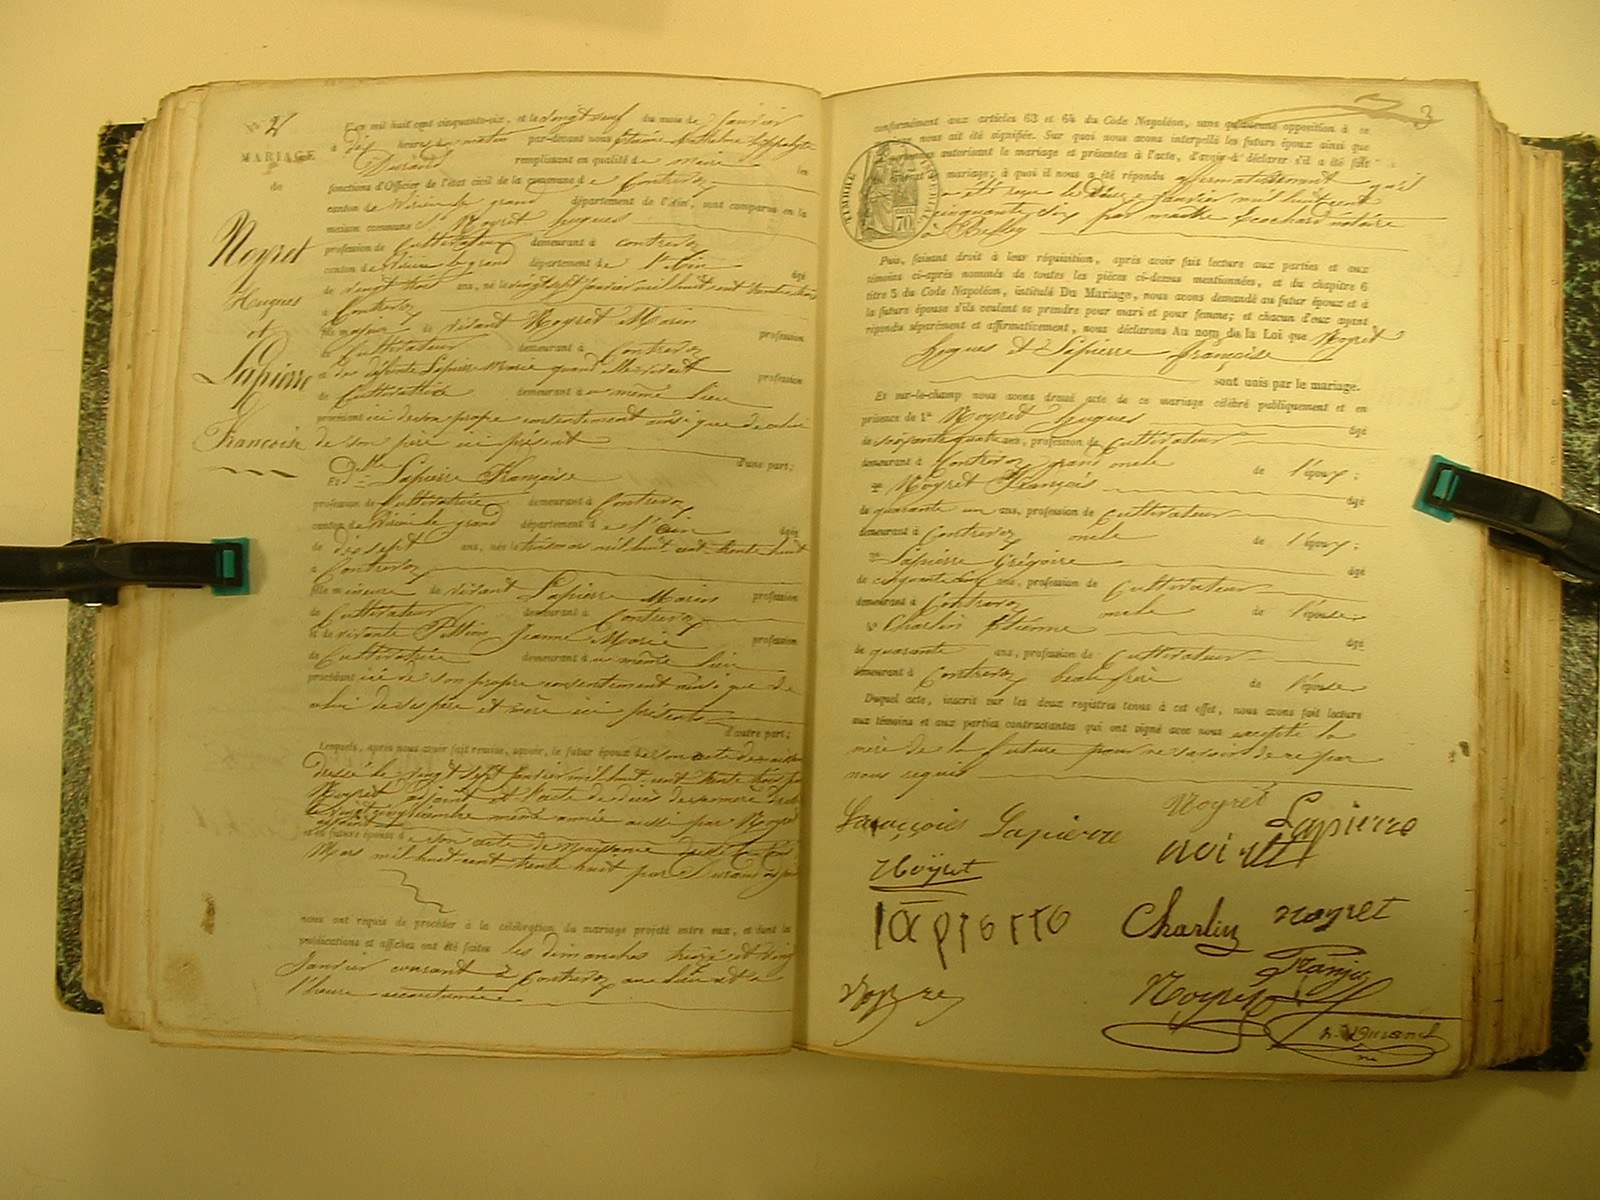 N° 2
MARIAGE
de
Noyret
Hugues
et
Lapierre
Françoise
L'an mil huit cent cinquante-six, et le vingt neuf du mois de Janvier
à dix heures du matin par-devant nous Anthelme hyppolyte
Durand remplissant en qualité de maire les
fonctions d'Officier de l'état civil de la commune de Contrevoz
canton de Virieu le grand département de l'Ain, sont comparus en la
maison commune Noyret hugues
profession de Cultivateur demeurant à Contrevoz
canton de Virieu le grand département de l'Ain âgé
de vingt trois ans, né le vingt sept Janvier mil huit cent trente trois
à Contrevoz
fils majeur de vivant Noyret Marin profession
de Cultivateur demeurant à Contrevoz
et de défunte Lapierre Marie quand elle vivait profession
de Cultivatrice demeurant à même lieu
procédant ici de son propre consentement ainsi que de celui
de son père ici présent
d'une part;
Et Dlle Lapierre Françoise
profession de Cultivatrice demeurant à Contrevoz
canton de Virieu le grand département de l'ain âgée
de dix sept ans, née le trois mars mil huit cent trente huit
à Contrevoz
fille mineure de vivant Lapierre Marin profession
de Cultivateur demeurant à Contrevoz
et de vivante Pillion Jeanne Marie profession
de Cultivatrice demeurant à même lieu
procédant ici de son propre consentement ainsi que de
celui de ses père et mère ici présents
d'autre part;
Lesquels, après nous avoir fait remise, savoir, le futur époux de son acte de naissance
dressé le vingt sept Janvier mil huit cent trente trois par
Noyret adjoint et l'acte de décès de sa mère
même année aussi par Noyret
et la future épouse de son acte de Naissance dressé le trois
Mars mil huit cent trente huit par Durand
nous ont requis de procéder à la célébration du mariage projeté entre eux, et dont les
publications et affiches ont été faites les dimanches treize et vingt
Janvier courant à Contrevoz au lieu et à
l'heure accoutumée
3
conformément aux articles 63 et 64 du Code Napoléon, sans qu'aucune opposition à ce
nous ait été signifiée. Sur quoi nous avons interpellé les futurs époux ainsi que
autorisant le mariage et présentes à l'acte, d'avoir à déclarer s'il a été fait
mariage; à quoi il nous a été répondu affirmativement qu'il
a été reçu le Janvier mil huit cent
cinquante six par maitre notaire
à Belley
TIMBRE IMPERIAL
70
Puis, faisant droit à leur réquisition, après avoir fait lecture aux parties et aux
témoins ci-après nommés de toutes les pièces ci-dessus mentionnées, et du chapitre 6
titre 5 du Code Napoléon, intitulé Du Mariage, nous avons demandé au futur époux et à
la future épouse s'ils veulent se prendre pour mari et pour femme; et chacun d'eux ayant
répondu séparément et affirmativement, nous déclarons Au nom de la Loi que Noyret
hugues et Lapierre françoise
sont unis par le mariage.
Et sur-le-champ nous avons dressé acte de ce mariage célébré publiquement et en
présence de 1° Noyret hugues âgé
de soixante quatre ans, profession de Cultivateur
demeurant à Contrevoz grand oncle de l'époux;
2° Noyret François âgé
de quarante un ans, profession de Cultivateur
demeurant à Contrevoz oncle de l'époux;
3° Lapierre Grégoire âgé
de cinquante cinq ans, profession de Cultivateur
demeurant à Contrevoz oncle de l'épouse;
4° Charlin Etienne âgé
de quarante ans, profession de Cultivateur
demeurant à Contrevoz beau frère de l'épouse
Duquel acte, inscrit sur les deux registres tenus à cet effet, nous avons fait lecture
aux témoins et aux parties contractantes qui ont signé avec nous excepté la
mère de la future pour ne savoir de ce par
nous requis
françoise Lapierre Noyret Lapierre
Noyret noiret
lapierre Charlin noyret
Noyret Noyret Françis
h. Durand